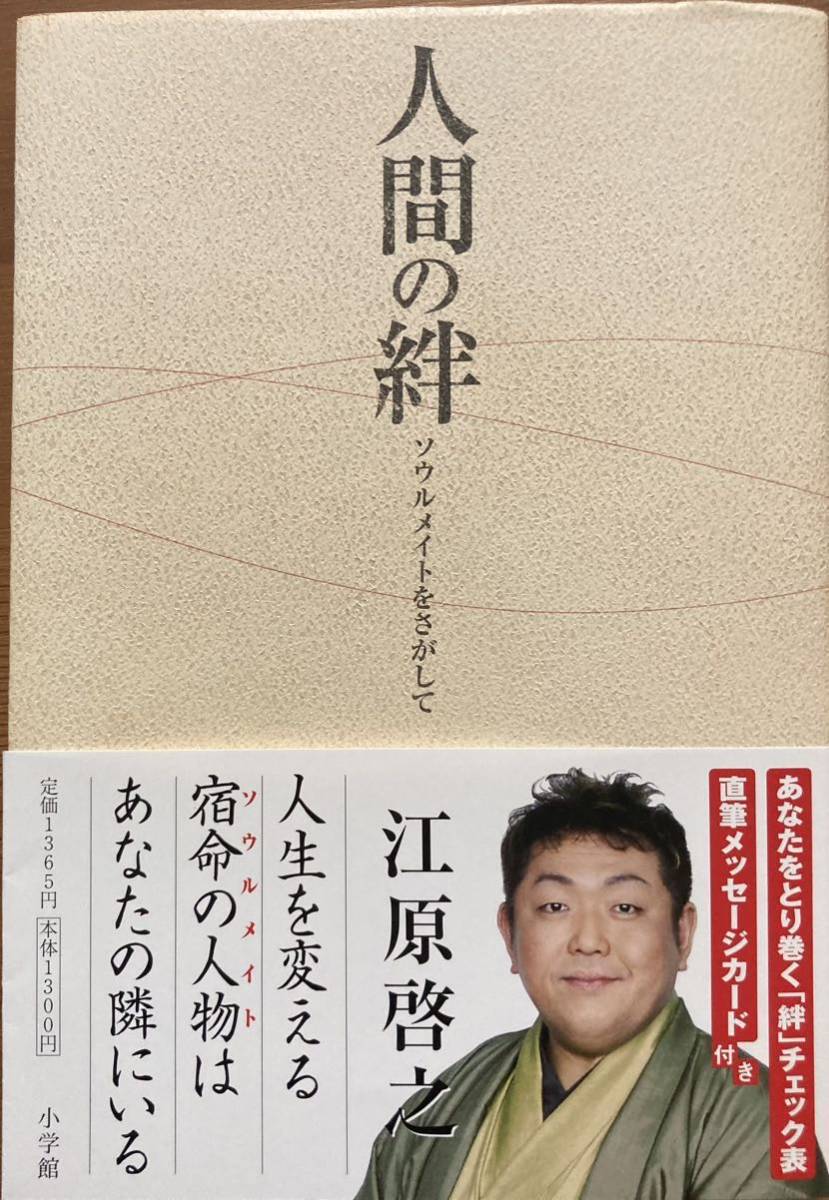 人間の絆
ソウルメイトをさがして
あなたをとり巻く「絆」チェック表
直筆メッセージカード付き
江原啓之
人生を変える
宿命の人物は
ソウルメイト
あなたの隣にいる
定価1365円 本体1300円
小学館